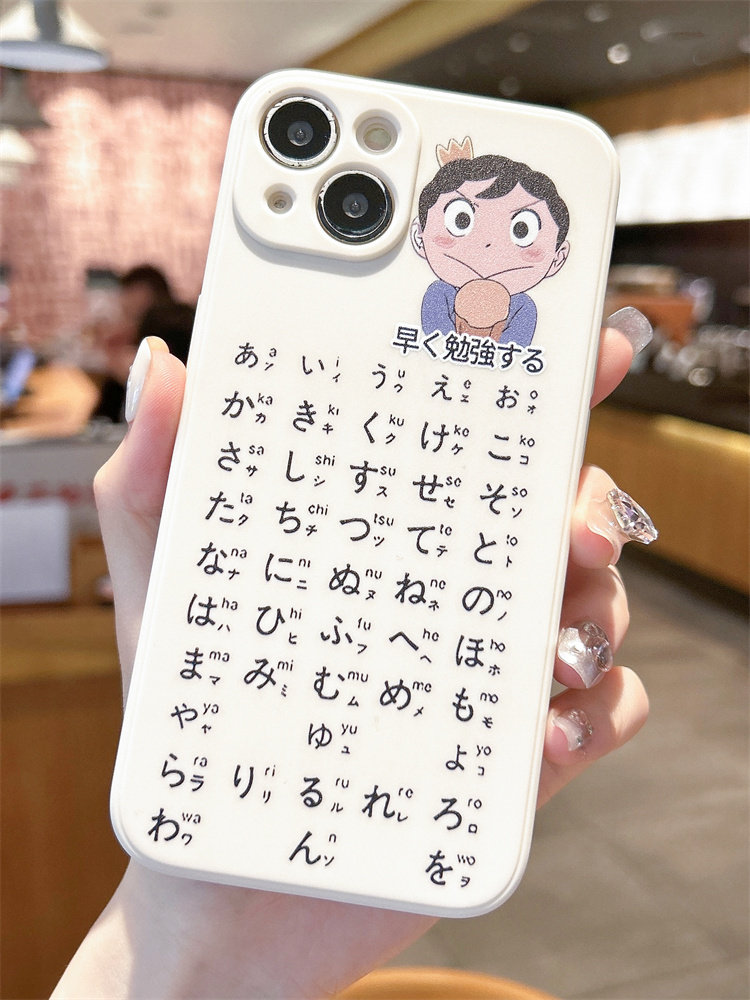 早く勉強する
あ a ア い i イ う u ウ え e エ お o オ
か ka カ き ki キ く ku ク け ke ケ こ ko コ
さ sa サ し shi シ す su ス せ se セ そ so ソ
た ta タ ち chi チ つ tsu ツ て te テ と to ト
な na ナ に ni ニ ぬ nu ヌ ね ne ネ の no ノ
は ha ハ ひ hi ヒ ふ fu フ へ he ヘ ほ ho ホ
ま ma マ み mi ミ む mu ム め me メ も mo モ
や ya ヤ ゆ yu ユ よ yo コ
ら ra ラ り ri リ る ru ル れ re レ ろ ro ロ
わ wa ワ ん n ソ を wo ヲ